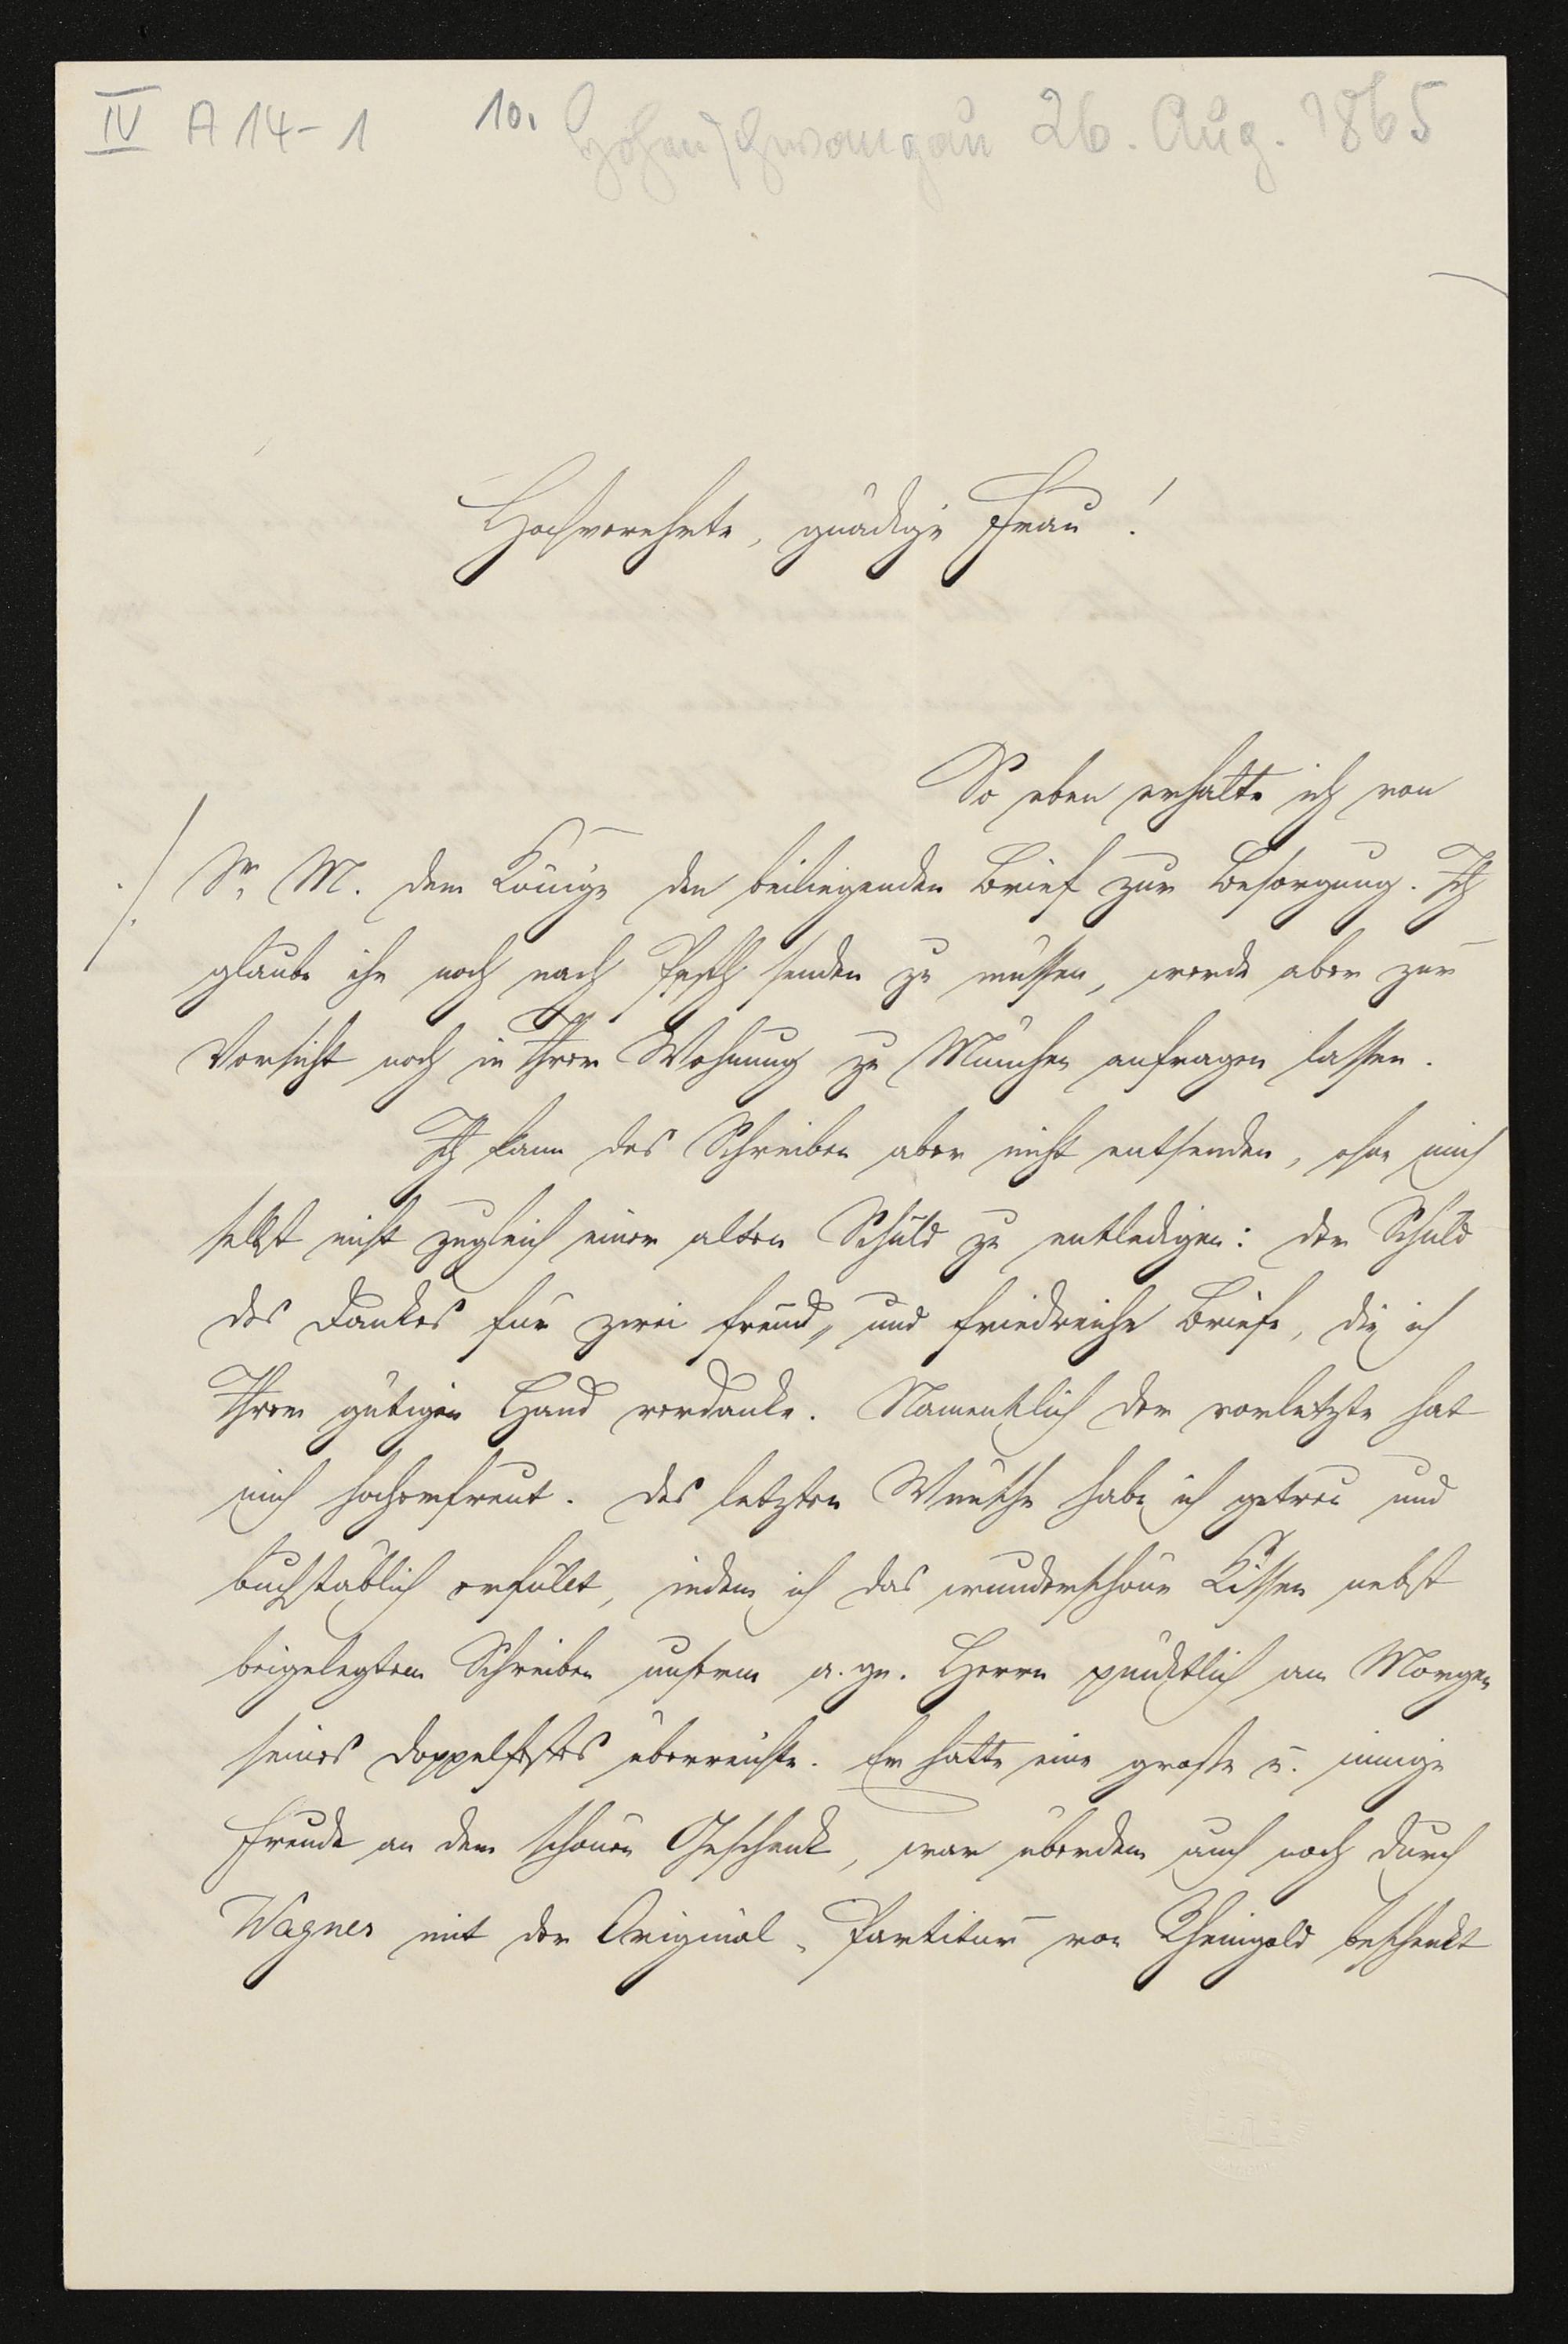 IV A 14-1 10. Hohenschwangau 26. Aug. 1865
Hochverehrte, gnädige Frau!
So eben erhalte ich von
./. Sr. M. dem Könige den beiliegenden Brief zur Besorgung. Ich
glaube ihn noch nach Pesth senden zu müssen, werde aber zur
Vorsicht noch in Ihrer Wohnung zu München anfragen lassen.
Ich kann das Schreiben aber nicht entsenden, ohne mich
selbst nicht zugleich einer alten Schuld zu entledigen: der Schuld
des Dankes für zwei freud- und friedreiche Briefe, die ich
Ihrer gütigen Hand verdanke. Namentlich der vorletzte hat
mich hocherfreut. Des letzten Wunsche habe ich getreu und
buchstäblich erfüllt, indem ich das wunderschöne Kissen nebst
beigelegtem Schreiben unserm a. gn. Herrn pünktlich am Morgen
seines Doppelfestes überreichte. Er hatte eine große u. innige
Freude an dem schönen Geschenk, war überdem auch noch durch
Wagner mit der Original-Partitur von Rheingold beschenkt